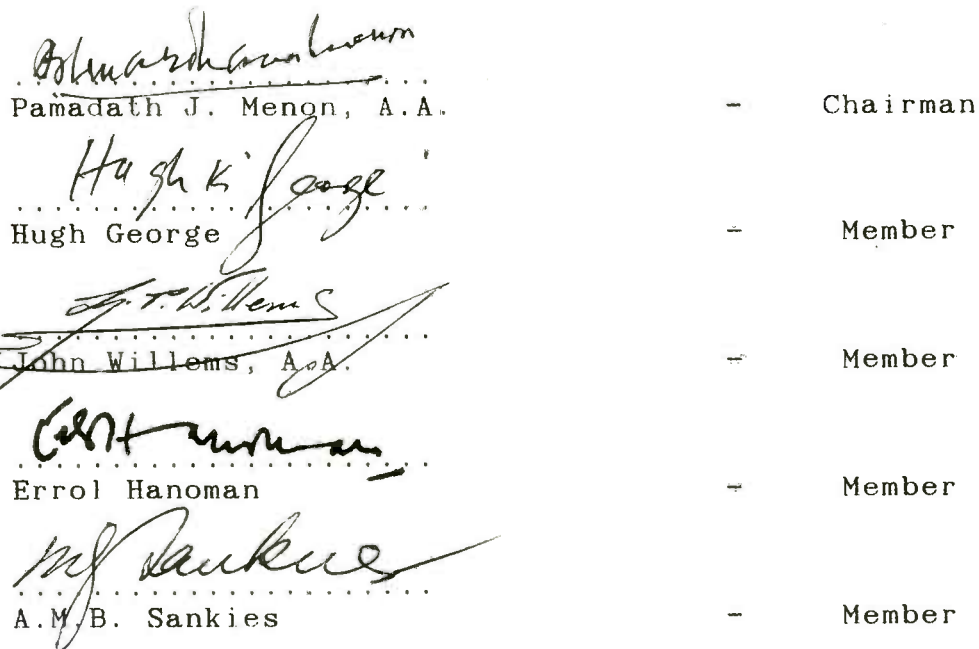 Pamadath J. Menon, A.A. - Chairman
Hugh K. George
Hugh George - Member
J. P. Willems
John Willems, A.A. - Member
Errol Hanoman - Member
A.M.B. Sankies - Member